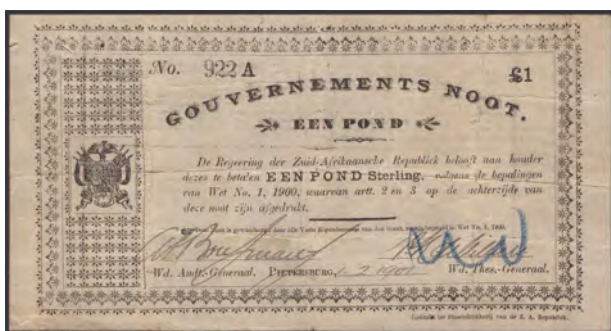 No. 922 A £1
GOUVERNEMENTS NOOT.
EEN POND
De Regeering der Zuid-Afrikaansche Republiek belooft aan houder
dezes te betalen EEN POND Sterling, volgens de bepalingen
van Wet No. 1, 1900, waarvan artt. 2 en 3 op de achterzijde van
deze noot zijn afgedrukt.
Wet No. 1, 1900.
Wd. Audt.-Generaal. PIETERSBURG, 1-2 1901 Wd. Thes.-Generaal.
Gedrukt ter Staatsdrukkerij van de Z. A. Republiek.